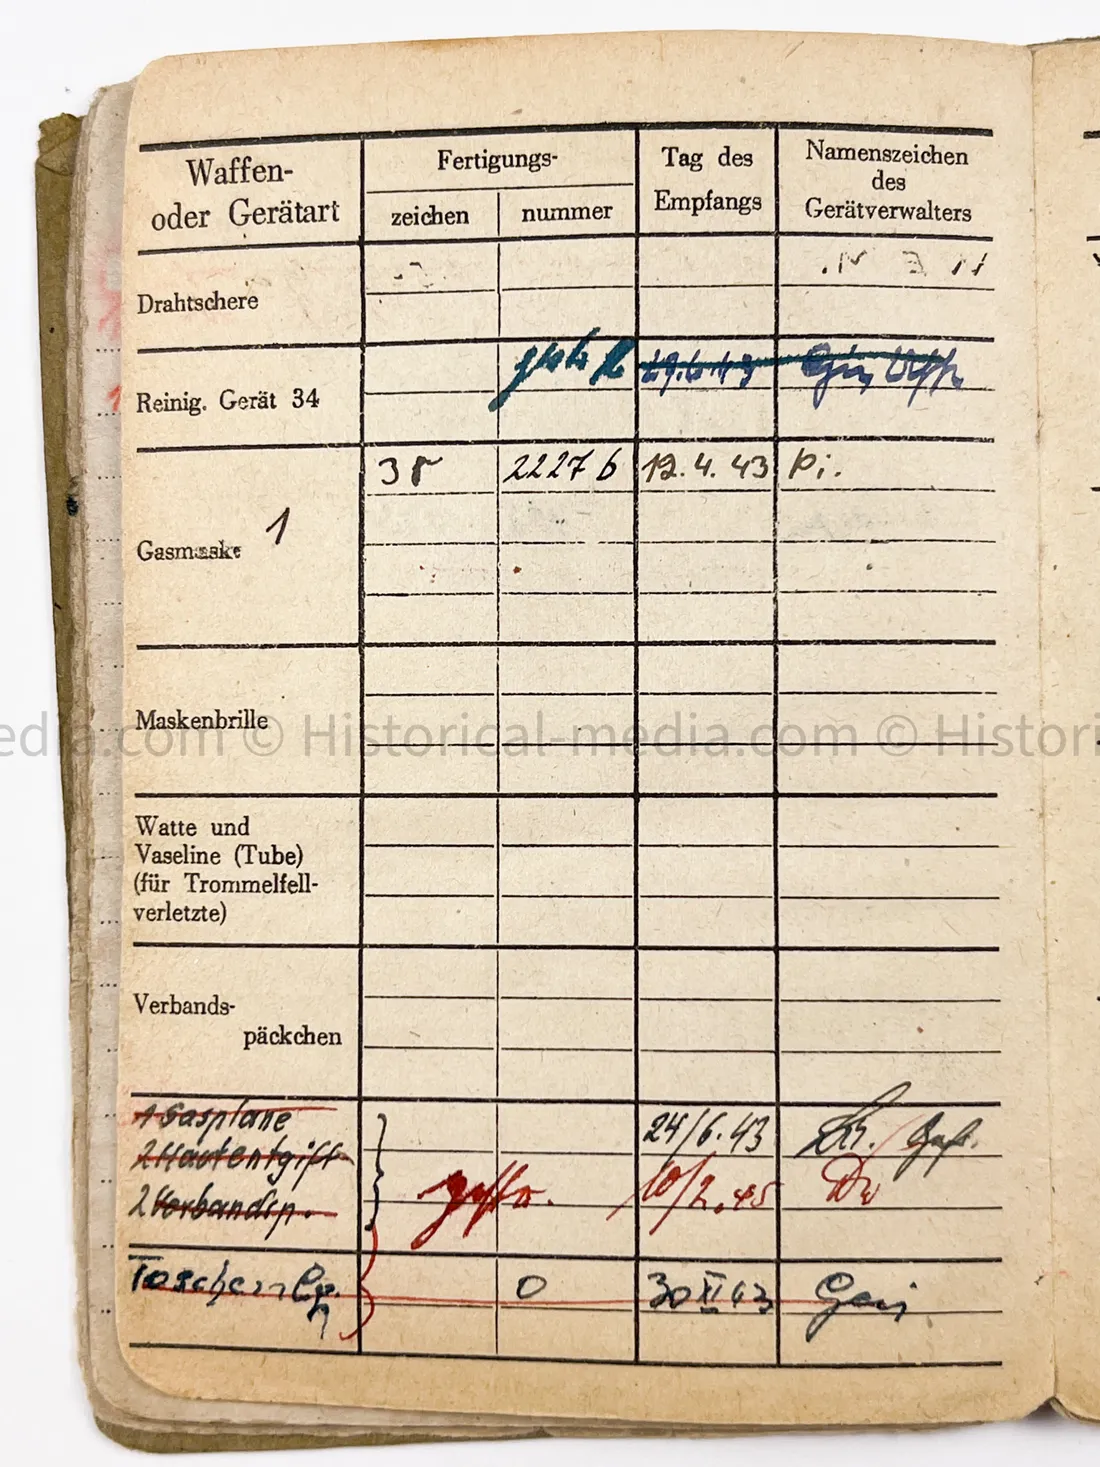 Waffen-
oder Gerätart
Fertigungs-
zeichen nummer
Tag des
Empfangs
Namenszeichen
des
Gerätverwalters
Drahtschere
Reinig. Gerät 34
29.6.43
Gasmaske 1 2227 b 12.4.43 Pi.
Maskenbrille
edia.com © Historical-media.com © Histori
Watte und
Vaseline (Tube)
(für Trommelfell-
verletzte)
Verbands-
päckchen
1 Gasplane 24/6.43
2 Hautentgift.
2 Verbandsp. 10/2.45
Taschen 0 30 XI 43